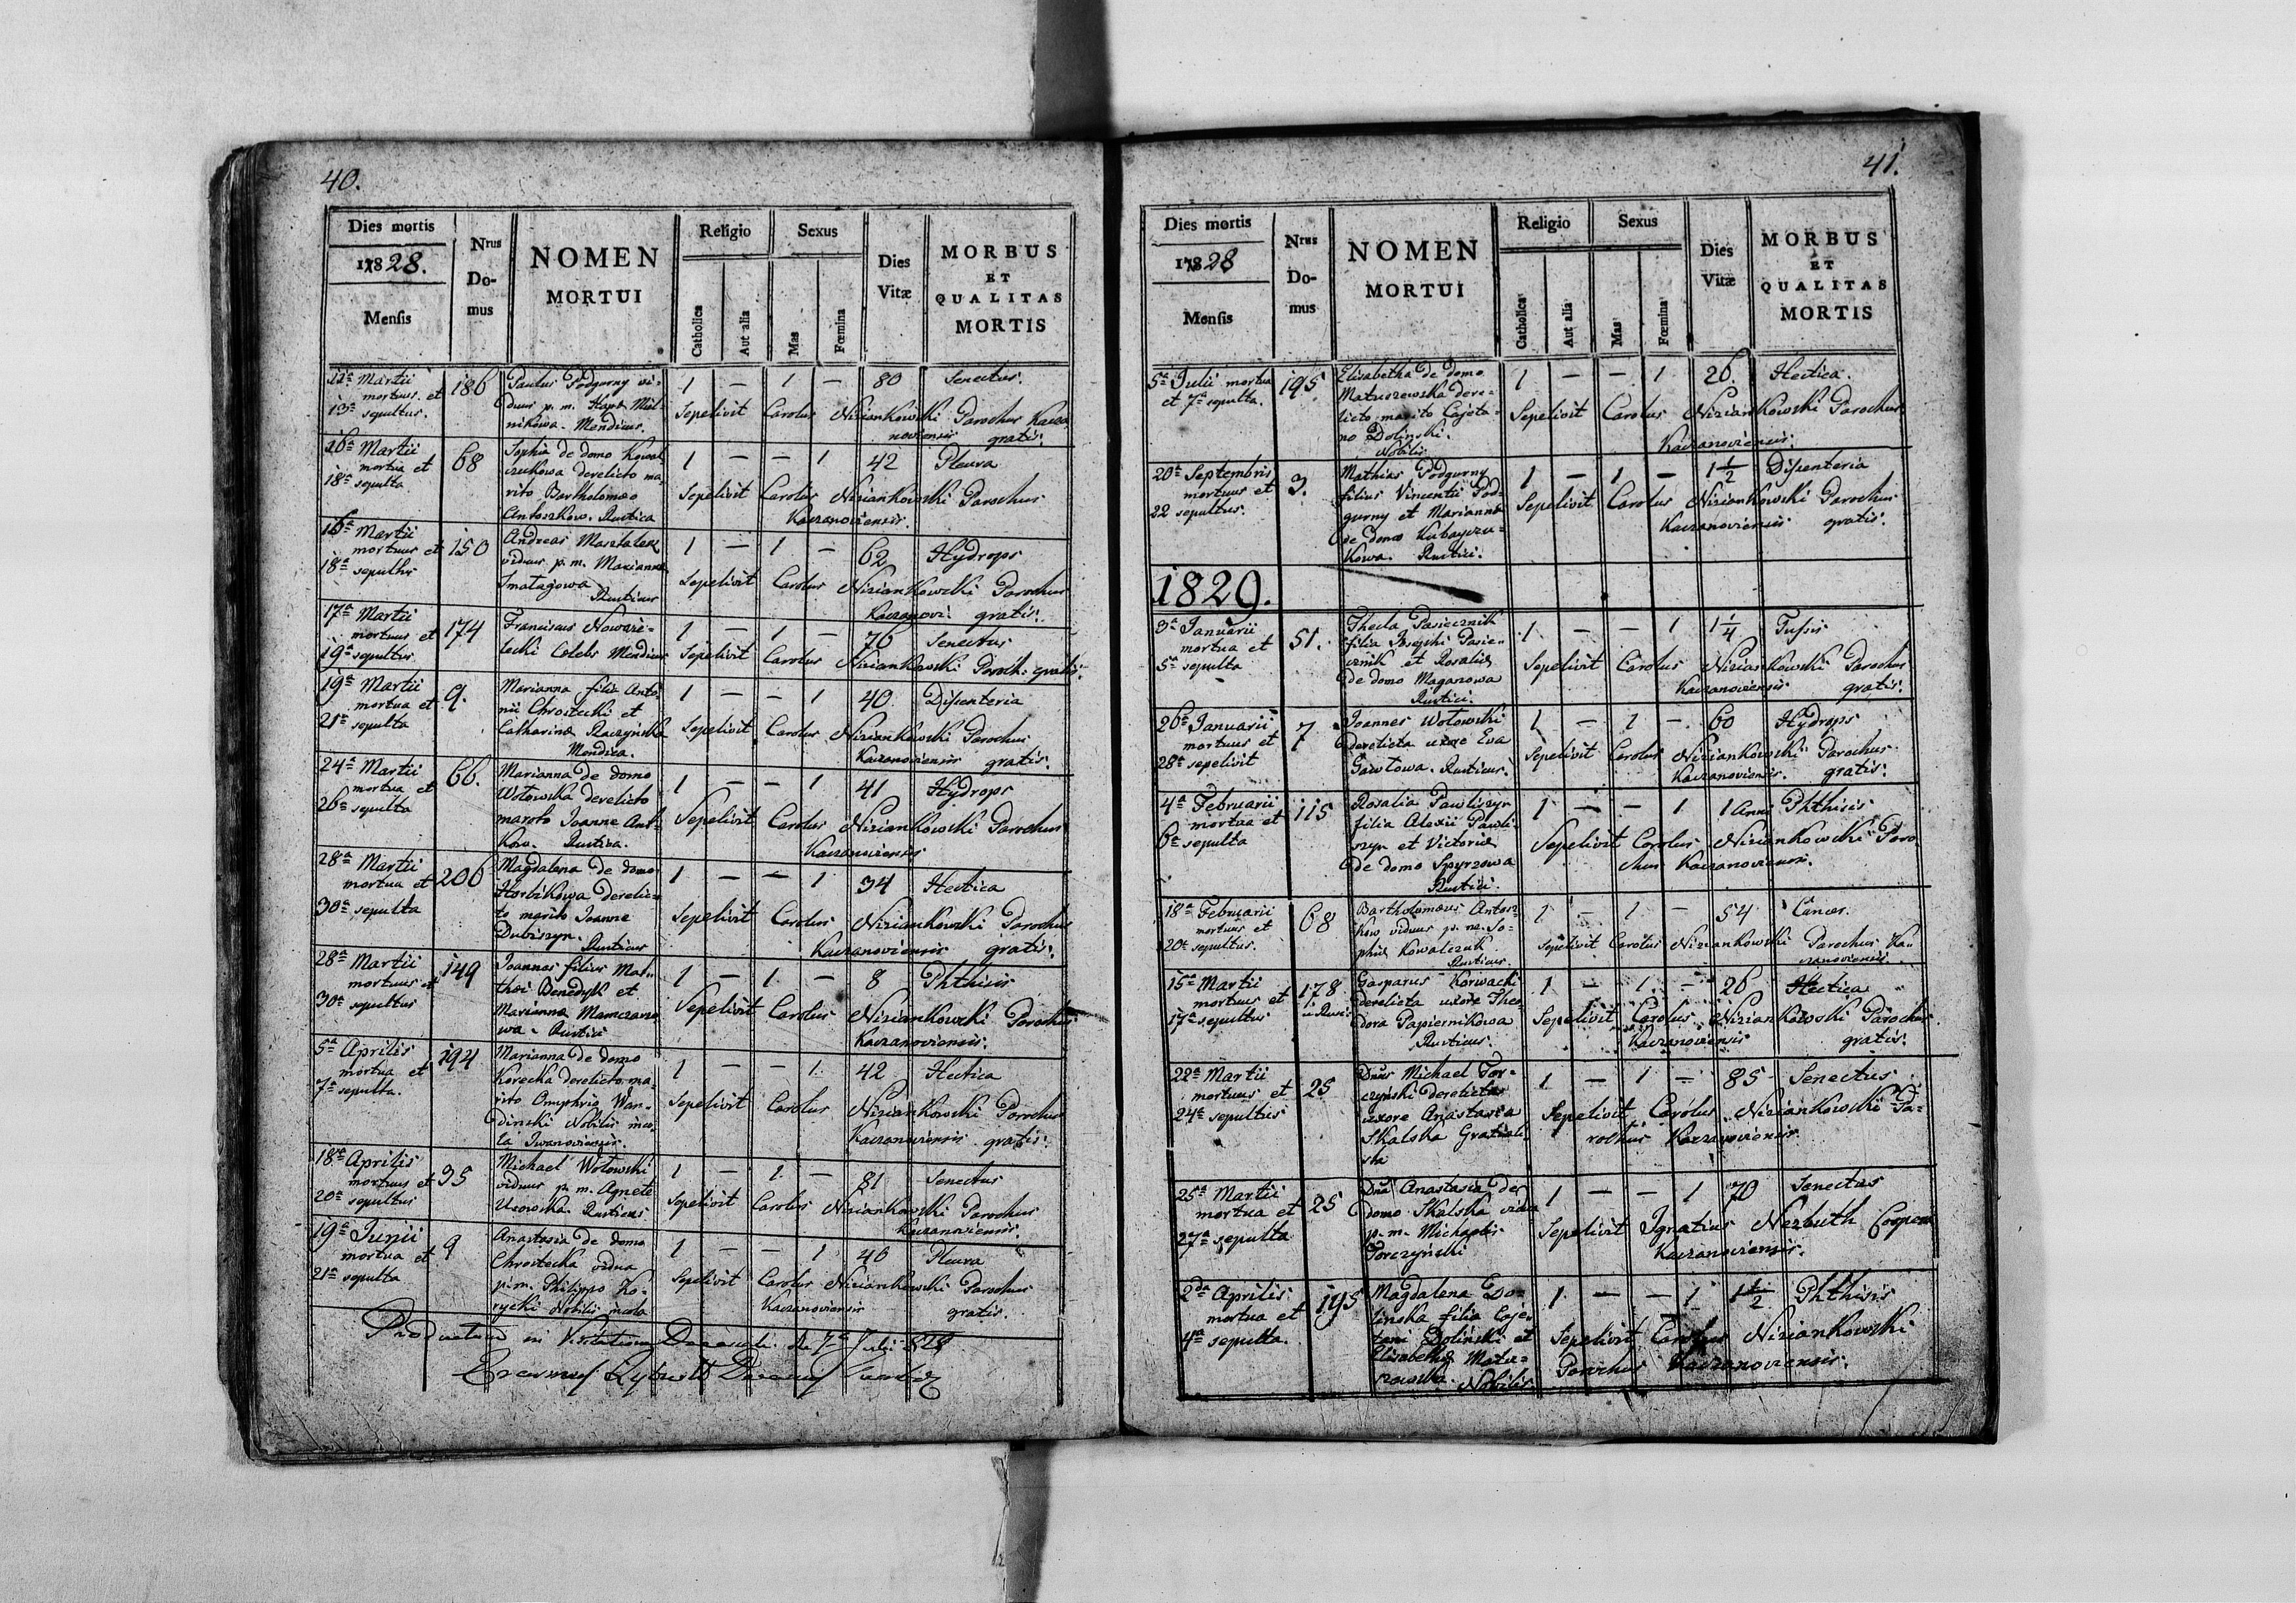 40.
Dies mortis
1828.
Mensis
Nrus Domus
NOMEN MORTUI
Religio
Catholica
Aut alia
Sexus
Mas
Fœmina
Dies Vitæ
MORBUS ET QUALITAS MORTIS
11a Martii mortuus et 13a sepultus.
186
Paulus Podgorny viduus p. m.
Mendicus.
1 — 1 — 80 Senectus.
Sepelivit Carolus Niziankowski Parochus Kaczanoviensis gratis.
16a Martii mortua et 18a sepulta
68
Sophia de domo Kowalczukowa derelicto marito Bartholomeo Antoszkow. Rustica
1 — — 1 42 Pleura
Sepelivit Carolus Niziankowski Parochus Kaczanoviensis.
16a Martii mortuus et 18a sepultus
150
Andreas Masztalerz viduus p. m. Marianna Smatagowa Rusticus
1 — 1 — 62 Hydrops
Sepelivit Carolus Niziankowski Parochus Kaczanovi. gratis.
17a Martii mortuus et 19a sepultus
174
Franciscus Nowosielecki Celebs Mendicus
1 — 1 — 76 Senectus
Sepelivit Carolus Niziankowski Paroch. gratis.
19a Martii mortua et 21a sepulta
9.
Marianna filia Antonii Chrostecki et Catharina Raczyńska Mendica.
1 — — 1 40 Disenteria
Sepelivit Carolus Niziankowski Parochus Kaczanoviensis gratis.
24a Martii mortua et 26a sepulta
66.
Marianna de domo Wotowska derelicto maroto Joanne Antkow. Rustica.
1 — — 1 41 Hydrops
Sepelivit Carolus Niziankowski Parochus Kaczanoviensis
28a Martii mortua et 30a sepulta
206
Magdalena de domo Horbikowa derelicto marito Joanne Dubiszyn. Rusticus
1 — — 1 34 Hectica
Sepelivit Carolus Niziankowski Parochus Kaczanoviensis gratis.
28a Martii mortuus et 30a sepultus
149
Joannes filius Mathei Benedyk et Marianna Mamczarowa. Rustici
1 — 1. — 8 Phthisis
Sepelivit Carolus Niziankowski Parochus Kaczanoviensis.
5a Aprilis mortua et 7a sepulta.
194
Marianna de domo Korecka derelicto marito Onuphrio Wardinski Nobilis incola Iwanoviensis.
1 — — 1. 42 Hectica
Sepelivit Carolus Niziankowski Parochus Kaczanoviensis gratis.
18a Aprilis mortuus et 20a sepultus
35
Michael Wotowski viduus p. m. Agnete Rusticus
1 — 1. — 81 Senectus
Sepelivit Carolus Niziankowski Parochus Kaczanoviensis.
19a Junii mortua et 21a sepulta
9
Anastasia de domo Chrostecka vidua p. m. Philippo Korycki Nobilis incola
1 — — 1 46 Pleura
Sepelivit Carolus Niziankowski Parochus Kaczanoviensis gratis.
Productum in Visitatione Decanali die 7a Julii 828
41.
Dies mortis
1828
Mensis
Nrus Domus
NOMEN MORTUI
Religio
Catholica
Aut alia
Sexus
Mas
Fœmina
Dies Vitæ
MORBUS ET QUALITAS MORTIS
5a Julii mortua et 7a sepulta.
195.
Elisabetha de domo Matuszewska derelicto marito Cajetano Dolinski. Nobilis
1 — — 1 26. Hectica.
Sepelivit Carolus Niziankowski Parochus Kaczanoviensis.
20a Septembris mortuus et 22 sepultus.
3.
Mathias Podgurny filius Vincentii Podgurny et Marianna de domo Kubayczukowa. Rustici.
1 — 1 — 1 1/2 Disenteria
Sepelivit Carolus Niziankowski Parochus Kaczanoviensis gratis.
1829.
3a Januarii mortua et 5a sepulta
51.
Thecla Pasiecznik filia Josephi Pasiecznik et Rosalia de domo Maganowa Rustici.
1 — — 1 1 1/4 Tussis
Sepelivit Carolus Niziankowski Parochus Kaczanoviensis gratis.
26a Januarii mortuus et 28a sepelivit
7
Joannes Wotowski derelicta uxore Eva Gawtowa. Rusticus.
1 — 1 — 60 Hydrops
Sepelivit Carolus Niziankowski Parochus Kaczanoviensis. gratis.
4a Februarii mortua et 6a sepulta
115
Rosalia Pawliszyn filia Alexii Pawliszyn et Victoria de domo Spyrzowa Rustici.
1 — — 1 1 Anni Phthisis
Sepelivit Carolus Niziankowski Parochus Kaczanoviensis.
18a Februarii mortuus et 20a sepultus.
68
Bartholomeus Antoszkow viduus p. m. Sophia Kowalczuk Rusticus.
1 — 1 — 54 Cancer.
Sepelivit Carolus Niziankowski Parochus Kaczanoviensis.
15a Martii mortuus et 17a sepultus
178
Gasparus Korwacki derelicta uxore Theodora Papiernikowa Rusticus.
1 — 1. — 26 Hectica
Sepelivit Carolus Niziankowski Parochus Kaczanoviensis gratis.
22a Martii mortuus et 24a sepultus
25
Dnus Michael Torczyński derelicta uxore Anastasia Skalska Gratialista
1. — 1 — 85 Senectus
Sepelivit Carolus Niziankowski Parochus Kaczanoviensis.
25a Martii mortua et 27a sepulta
25
Dna Anastasia de domo Skalska vidua p. m. Michaelis Torczyński
1 — — 1 70 Senectus
Sepelivit Ignatius Nezbuth Cooper Kaczanoviensis.
2da Aprilis mortua et 4a sepulta.
195
Magdalena Dolinska filia Cajetani Dolinski et Elisabetha Matuszewska. Nobilis
1. — — 1 1 1/2 Phthisis
Sepelivit Carolus Niziankowski Parochus Kaczanoviensis.